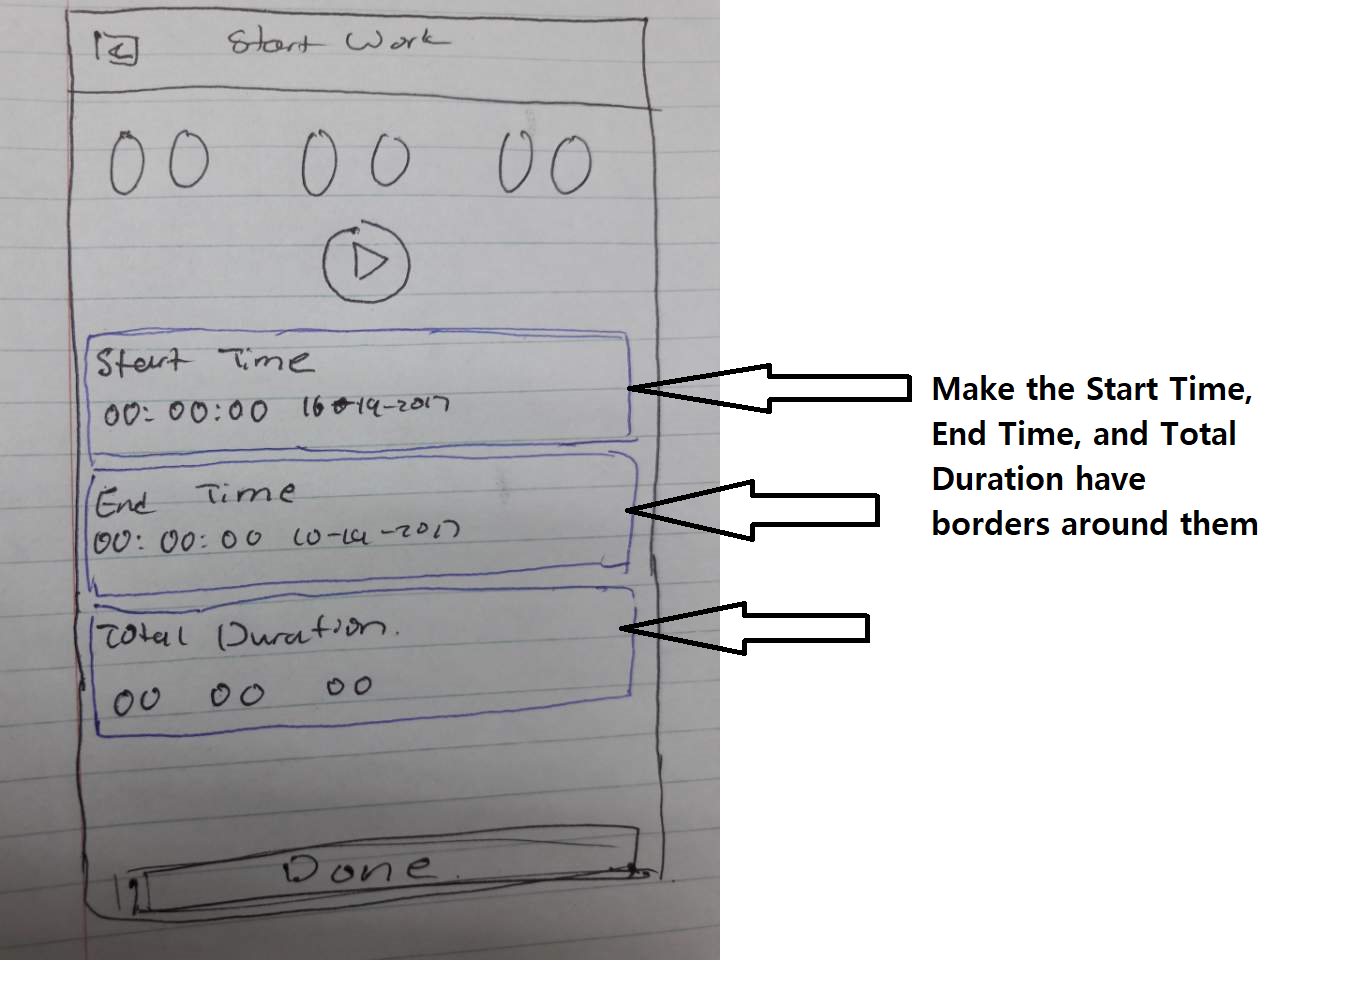 Start Work
00 00 00
Start Time
00:00:00 10-19-2017
End Time
00:00:00 10-19-2017
Total Duration.
00 00 00
Done
Make the Start Time,
End Time, and Total
Duration have
borders around them